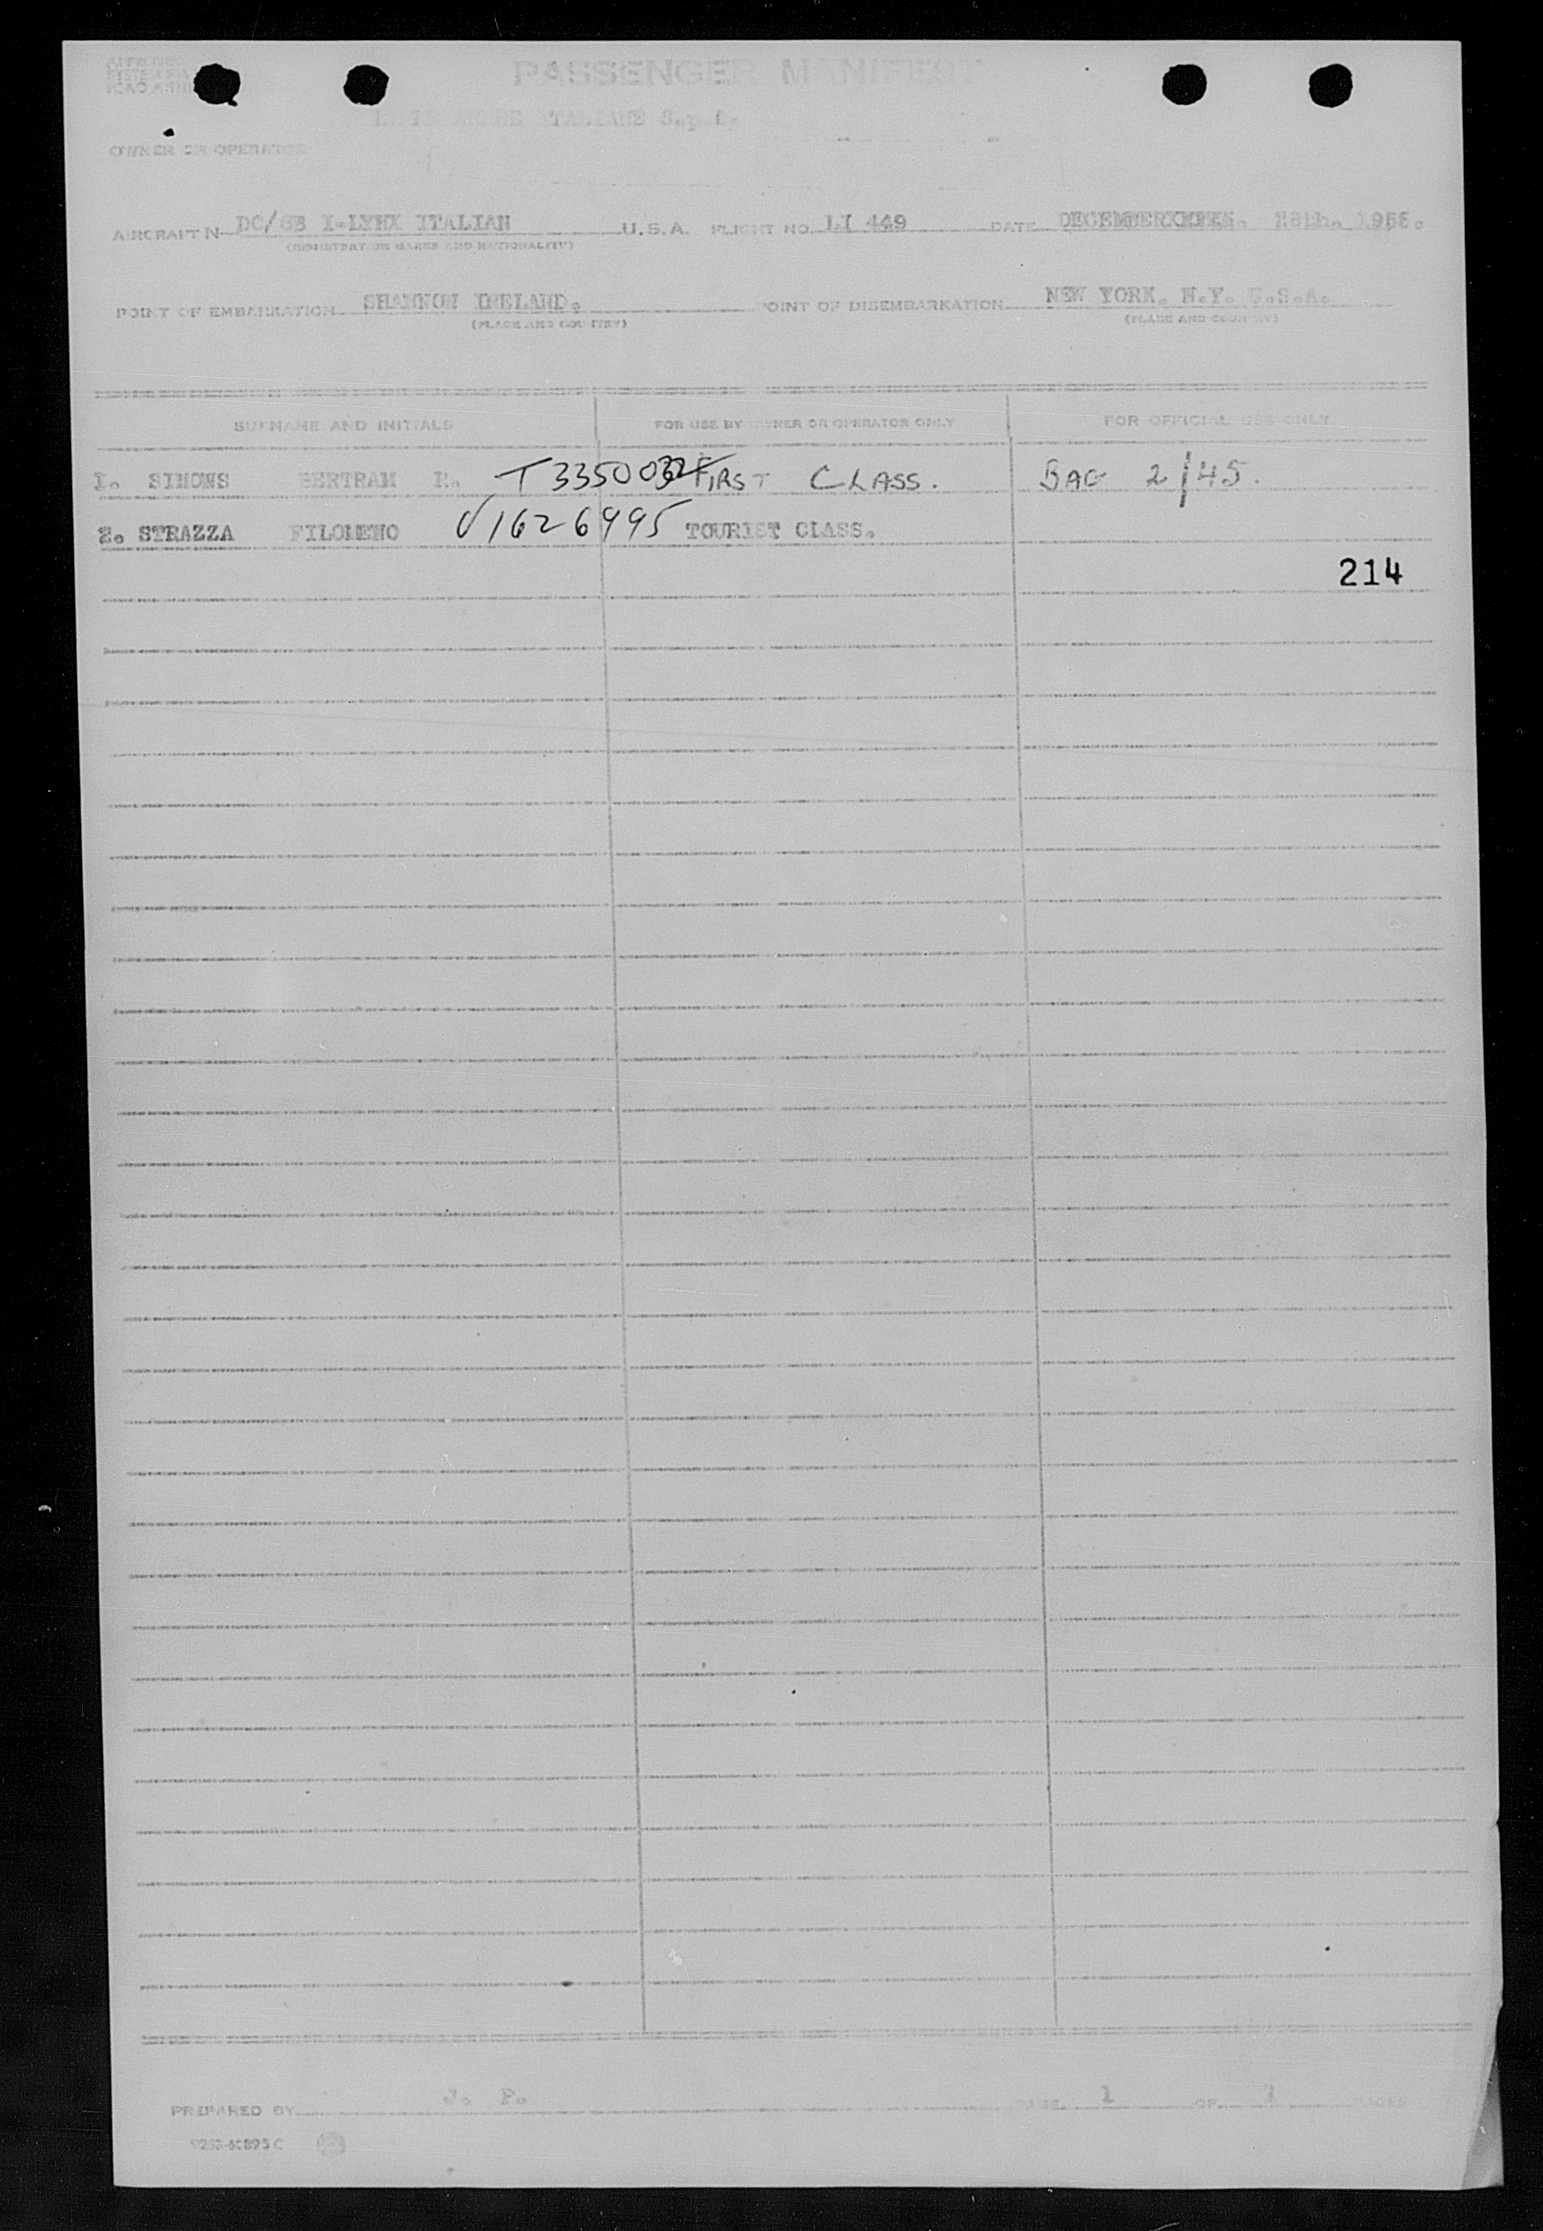 PASSENGER MANIFEST
ITALIANE S.p.A.
OWNER OR OPERATOR
AIRCRAFT N DC/6B I-LYNX ITALIAN U.S.A. FLIGHT NO. LI 449 DATE 1956.
(REGISTRATION MARKS AND NATIONALITY)
POINT OF EMBARKATION SHANNON IRELAND. POINT OF DISEMBARKATION NEW YORK. N.Y. U.S.A.
(PLACE AND COUNTRY) (PLACE AND COUNTRY)
SURNAME AND INITIALS FOR USE BY OWNER OR OPERATOR ONLY FOR OFFICIAL USE ONLY
I. SIMONS BERTRAM T FIRST CLASS. BAG 2/45.
2. STRAZZA FILOMENO V1626995 TOURIST CLASS.
214
PREPARED BY J. P. PAGE 1 OF 1 PAGES